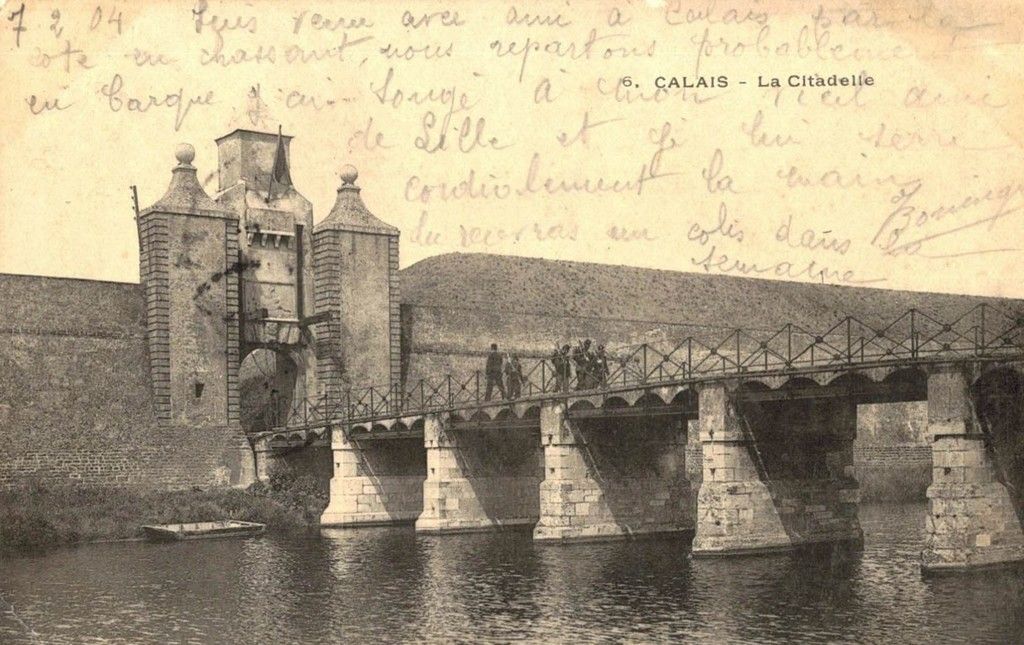 7 2 04 Suis venu avec ami à Calais par la
cote en chassant, nous repartons probablement
en barque j'ai songé à mon vieil ami
6. CALAIS - La Citadelle
de Lille et je lui serre
cordialement la main
tu recevras un colis dans
la
semaine